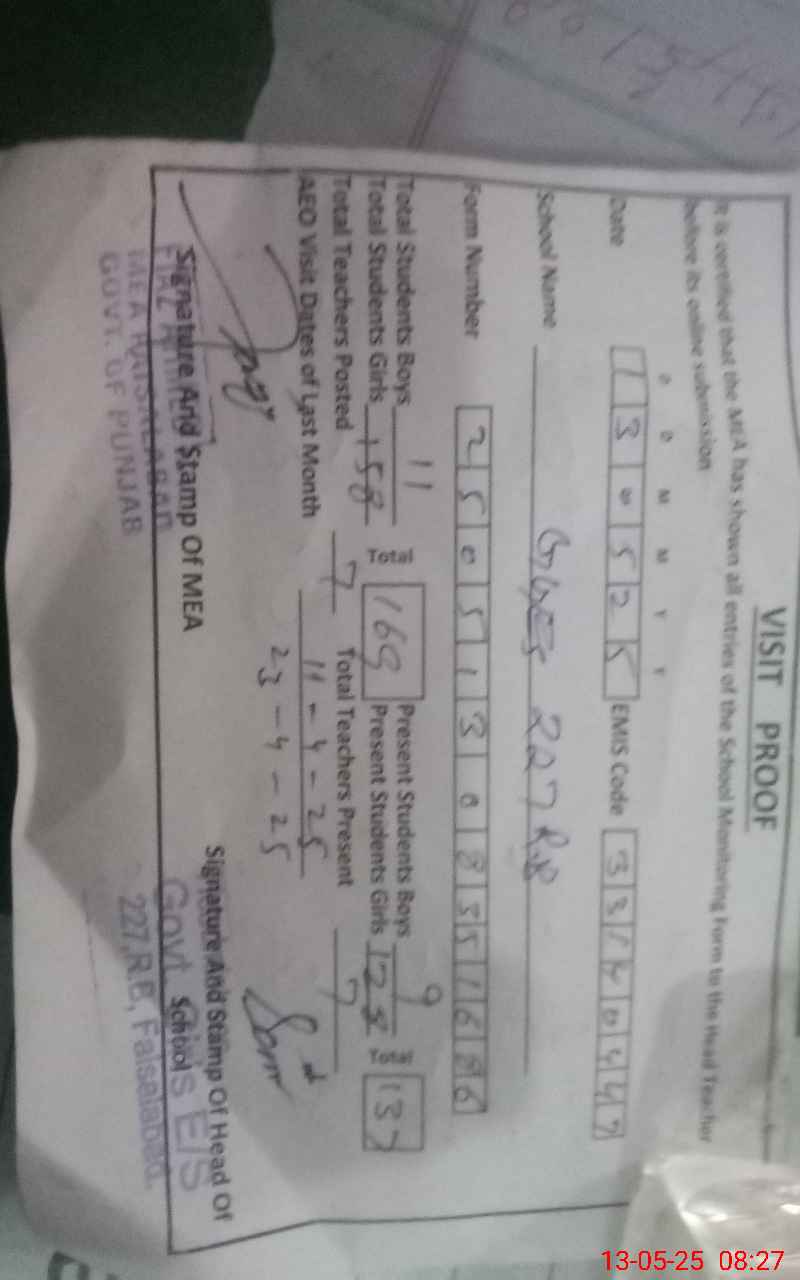 VISIT PROOF
It is certified that the MEA has shown all entries of the School Monitoring Form to the Head Teacher
before its online submission
D D M M Y Y
Date 1 3 0 5 2 5 EMIS Code 3 3 1 4 0 4 4 7
School Name 227 R.B
Form Number 2 5 0 5 1 3 0 8 3 5 1 6 8 6
Total Students Boys 11 Total Present Students Boys 9 Total
Total Students Girls 158 169 Present Students Girls 128 137
Total Teachers Posted 7 Total Teachers Present 7
AEO Visit Dates of Last Month 11-4-25
23-4-25
Signature And Stamp Of MEA
Signature And Stamp Of Head Of
School
MEA FAISALABAD
GOVT. OF PUNJAB
Govt. G E/S
227, R.B, Faisalabad.
13-05-25 08:27